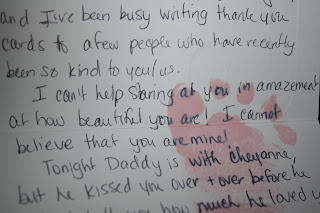 and I've been busy writing thank you
cards to a few people who have recently
been so kind to you/us.
I can't help staring at you in amazement
at how beautiful you are! I cannot
believe that you are mine!
Tonight Daddy is with Cheyanne,
but he kissed you over + over before he
you how much he loved